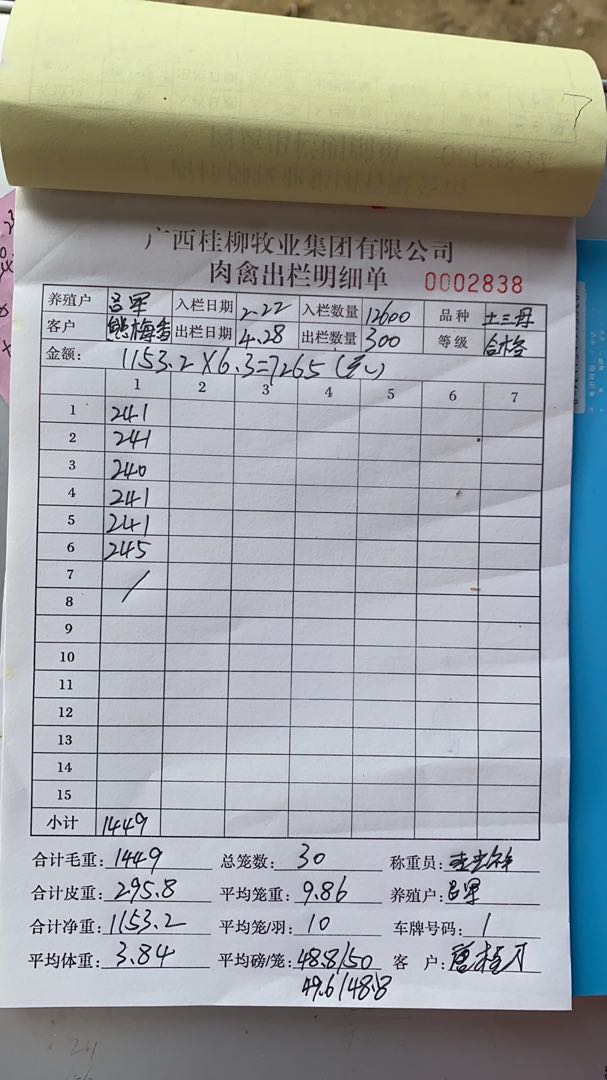 广西桂柳牧业集团有限公司
肉禽出栏明细单 0002838
养殖户 吕军 入栏日期 2.22 入栏数量 12600 品种 土三丹
客户 熊梅香 出栏日期 4.28 出栏数量 300 等级 合格
金额: 1153.2×6.3=7265(元)
1 2 3 4 5 6 7
1 241
2 241
3 240
4 241
5 241
6 245
7 /
8
9
10
11
12
13
14
15
小计 1449
合计毛重: 1449 总笼数: 30 称重员:
合计皮重: 295.8 平均笼重: 9.86 养殖户: 吕军
合计净重: 1153.2 平均笼/羽: 10 车牌号码: 1
平均体重: 3.84 平均磅/笼: 48.8/50 客 户:
49.6/48.8